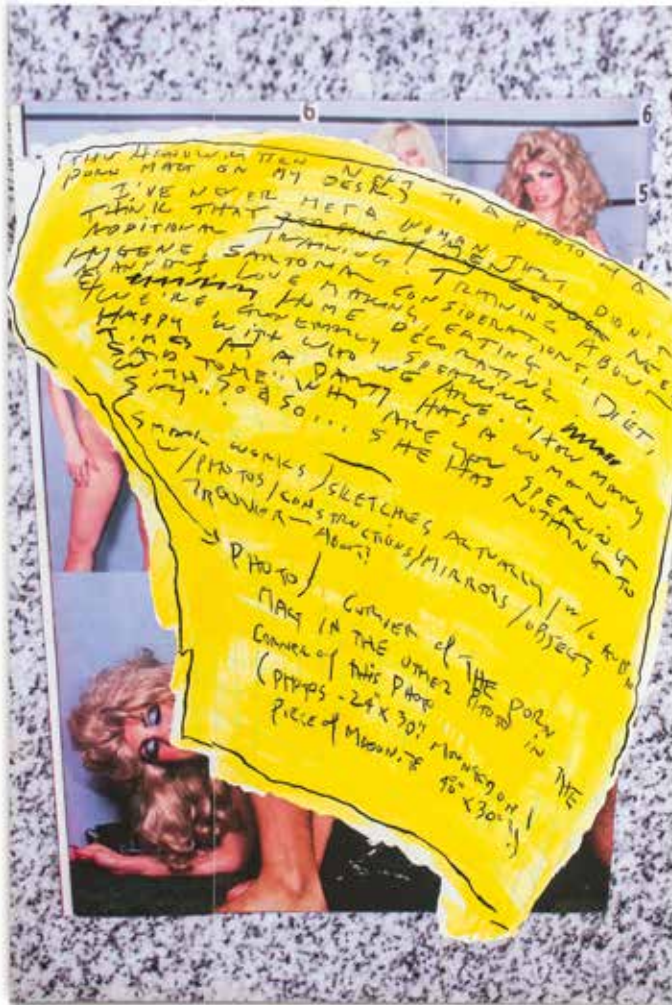 6
6
5
(THIS HANDWRITTEN NEXT TO A PHOTO OF A
PORN MAG ON MY DESK)
I'VE NEVER MET A WOMAN THAT DIDN'T
THINK THAT MEN NEED
ADDITIONAL TRAINING. TRAINING ABOUT
HYGENE, SARTORIAL CONSIDERATIONS, DIET,
MANNERS, LOVE MAKING, EATING,
& HOME DECORATING.
WE'RE GENERALLY SPEAKING
HAPPY WITH WHO WE ARE. HOW MANY
TIMES AT A PARTY HAS A WOMAN
SAID TO ME "WHY ARE YOU SPEAKING
WITH SO & SO... SHE HAS NOTHING TO
SAY".
SMALL WORKS / SKETCHES ACTUALLY /
W/ PHOTOS / CONSTRUCTIONS / MIRRORS / OBJECTS
PHOTO / CORNER OF THE PORN
MAG IN THE OTHER PHOTO IN THE
CORNER OF THIS PHOTO
(PHOTOS - 24" X 30" MOUNTED ON /
PIECE OF MASONITE 48" X 30"!)